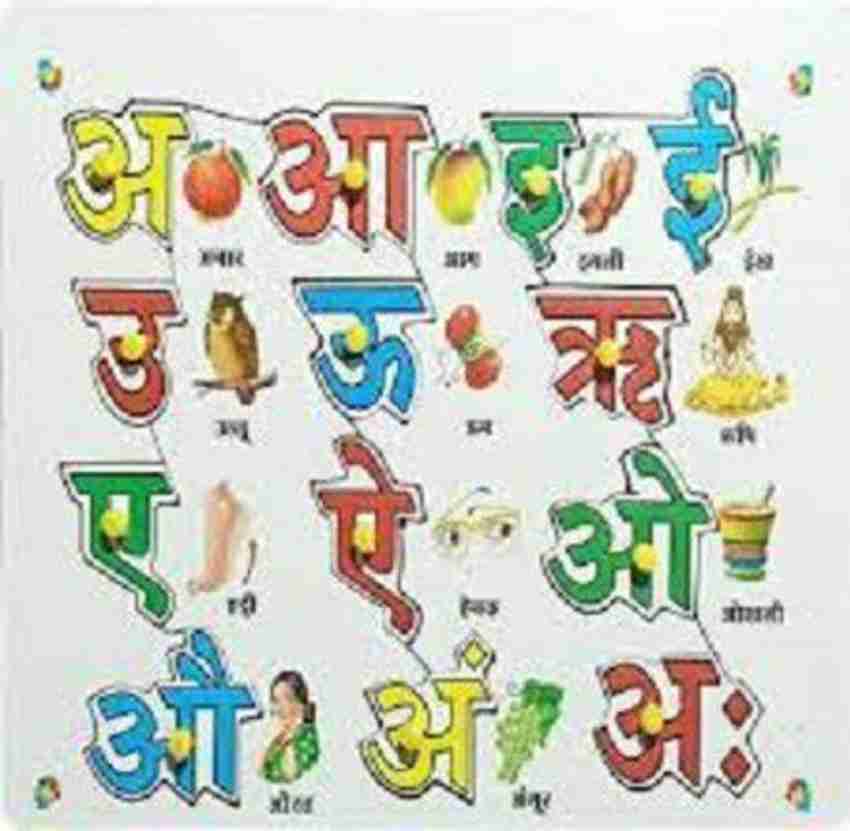 अ आ इ ई
अनार आम इमली ईख
उ ऊ ऋ
उल्लू ऊन ऋषि
ए ऐ ओ
एड़ी ऐनक ओखली
औ अं अः
औरत अंगूर